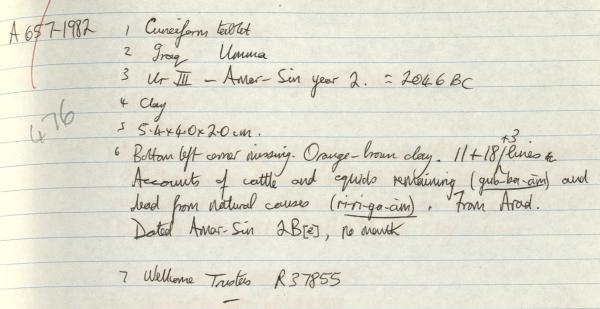 A 657-1982
1 Cuneiform tablet
2 Iraq Umma
3 Ur III - Amar-Sin year 2. = 2046 BC
4 Clay
476
5 5.4 x 4.0 x 2.0 cm.
6 Bottom left corner missing. Orange-brown clay. 11 + 18 +3 lines
Accounts of cattle and equids remaining (gub-ba-àm) and
dead from natural causes (ri-ri-ga-àm). From Arad.
Dated Amar-Sin 2B[é], no month
7 Wellcome Trustees R37855